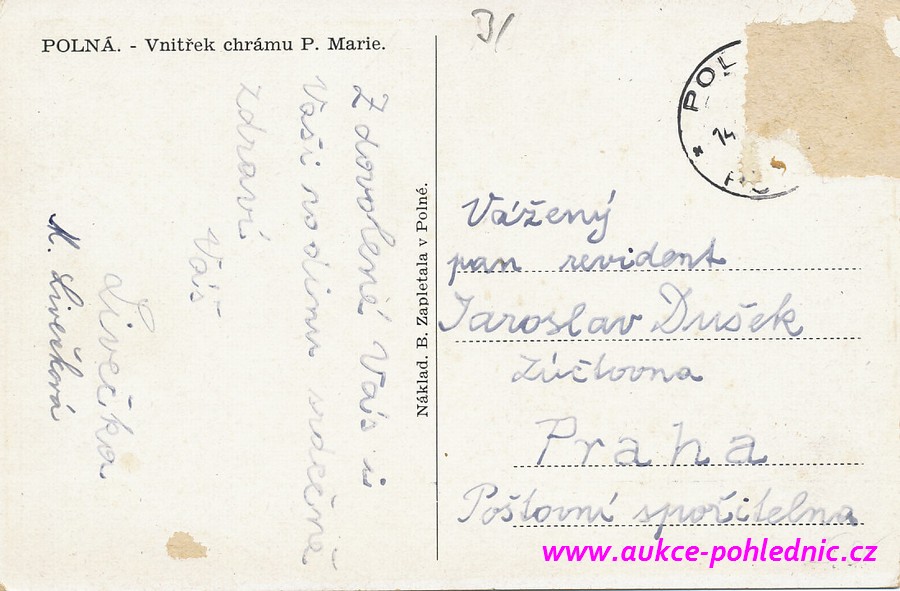 POLNÁ. - Vnitřek chrámu P. Marie.
Z dovolené Vás i
Vaši rodinu srdečně
zdraví
Váš
Livečka
M. Livečková
Náklad. B. Zapletala v Polné.
POL
14
Vážený
pan revident
Jaroslav Dušek
Zúčtovna
Praha
Poštovní spořitelna
www.aukce-pohlednic.cz